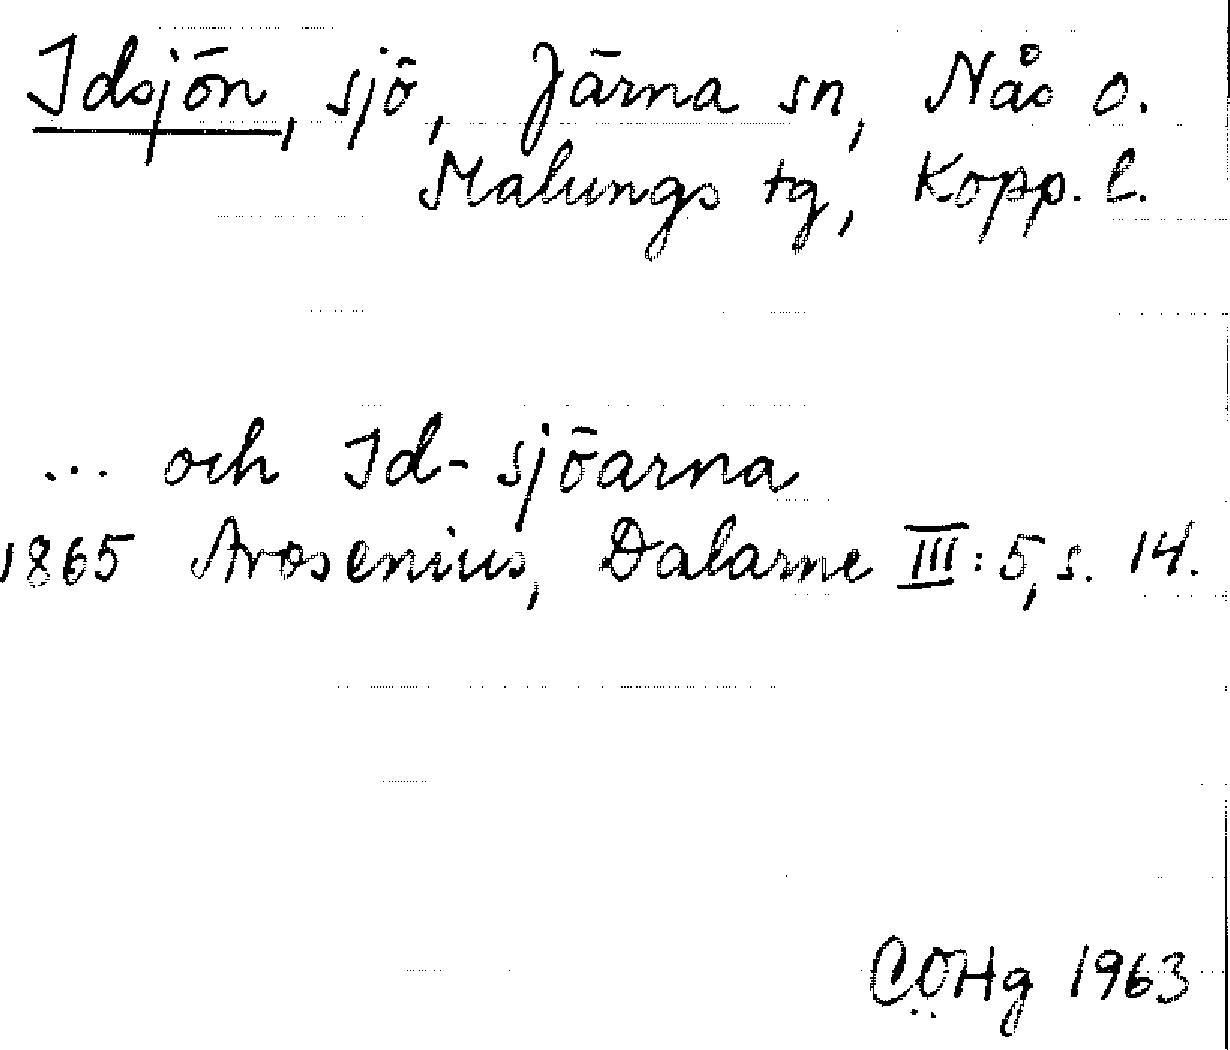 Idsjön, sjö, Järna sn, Nås o.
Malungs tg, Kopp. l.
... och Id-sjöarna
1865 Arosenius, Dalarne III:5, s. 14.
CÖHg 1963